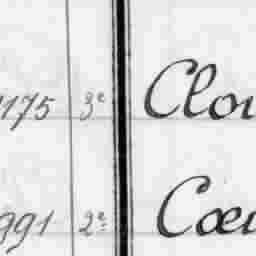 1175 3e Clou
991 2e Cœu